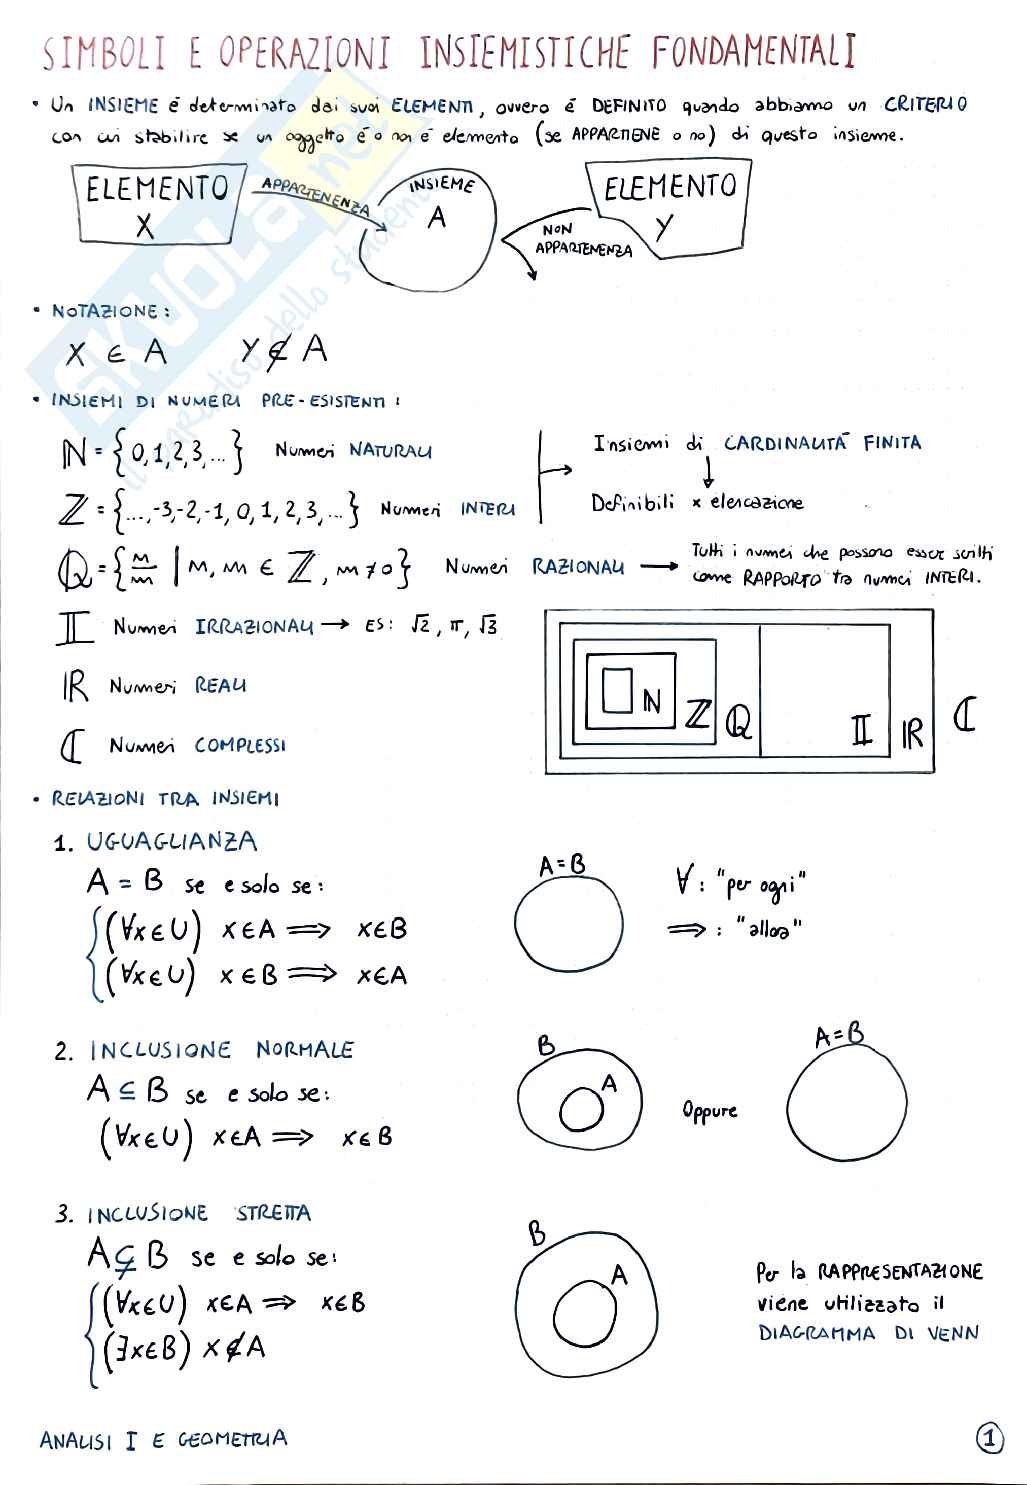 SIMBOLI E OPERAZIONI INSIEMISTICHE FONDAMENTALI
• Un INSIEME è determinato dai suoi ELEMENTI, ovvero è DEFINITO quando abbiamo un CRITERIO
con cui stabilire se un oggetto è o non è elemento (se APPARTIENE o no) di questo insieme.
ELEMENTO X
APPARTENENZA
INSIEME A
NON APPARTENENZA
ELEMENTO Y
• NOTAZIONE:
X ∈ A Y ∉ A
• INSIEMI DI NUMERI PRE-ESISTENTI:
ℕ = {0,1,2,3,...} Numeri NATURALI
ℤ = {...,-3,-2,-1,0,1,2,3,...} Numeri INTERI
Insiemi di CARDINALITÀ FINITA
↓
Definibili x elencazione
ℚ = {m/n | m, n ∈ ℤ, n ≠ 0} Numeri RAZIONALI → Tutti i numeri che possono esser scritti
come RAPPORTO tra numeri INTERI.
𝕀 Numeri IRRAZIONALI → ES: √2, π, √3
ℝ Numeri REALI
ℂ Numeri COMPLESSI
ℕ ℤ ℚ 𝕀 ℝ ℂ
• RELAZIONI TRA INSIEMI
1. UGUAGLIANZA
A = B se e solo se:
(∀x∈U) x∈A ⟹ x∈B
(∀x∈U) x∈B ⟹ x∈A
A=B
∀: "per ogni"
⟹: "allora"
2. INCLUSIONE NORMALE
A ⊆ B se e solo se:
(∀x∈U) x∈A ⟹ x∈B
B A Oppure A=B
3. INCLUSIONE STRETTA
A ⊊ B se e solo se:
(∀x∈U) x∈A ⟹ x∈B
(∃x∈B) x∉A
B A
Per la RAPPRESENTAZIONE
viene utilizzato il
DIAGRAMMA DI VENN
ANALISI I E GEOMETRIA
1
SKUOLA.net
il paradiso dello studente